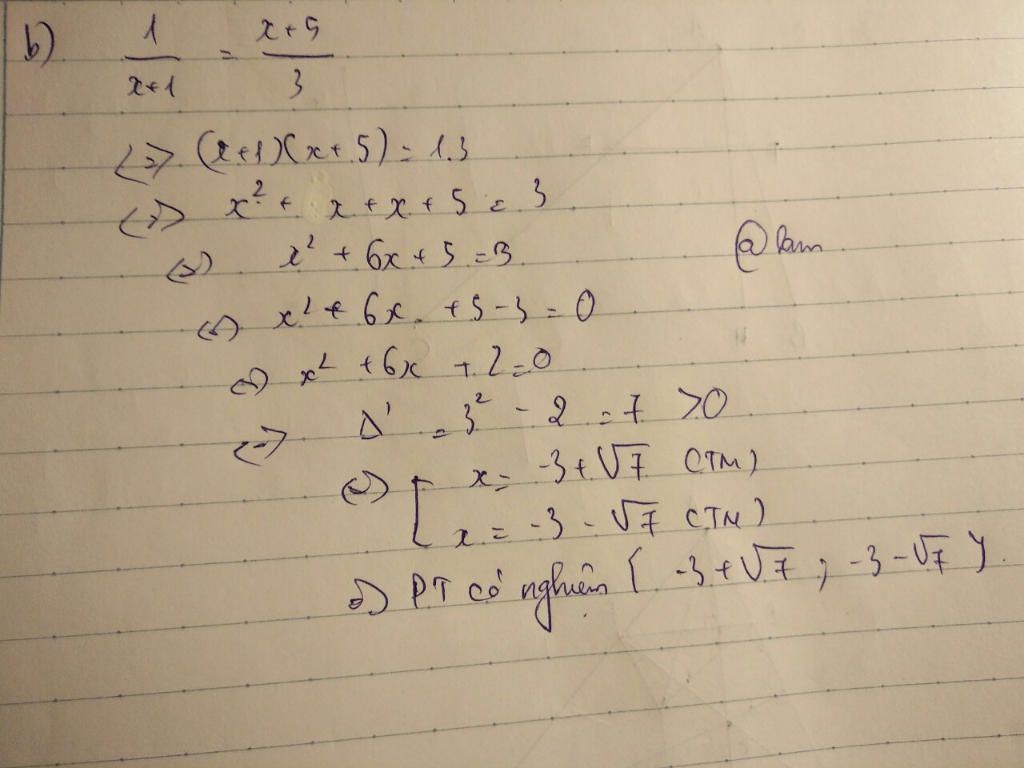 b) 1/(x+1) = (x+5)/3
<=> (x+1)(x+5) = 1.3
<=> x² + x + x + 5 = 3
<=> x² + 6x + 5 = 3
@lam
<=> x² + 6x + 5 - 3 = 0
<=> x² + 6x + 2 = 0
<=> Δ' = 3² - 2 = 7 > 0
<=> [ x = -3 + √7 (TM)
x = -3 - √7 (TM)
=> PT có nghiệm { -3 + √7 ; -3 - √7 }.